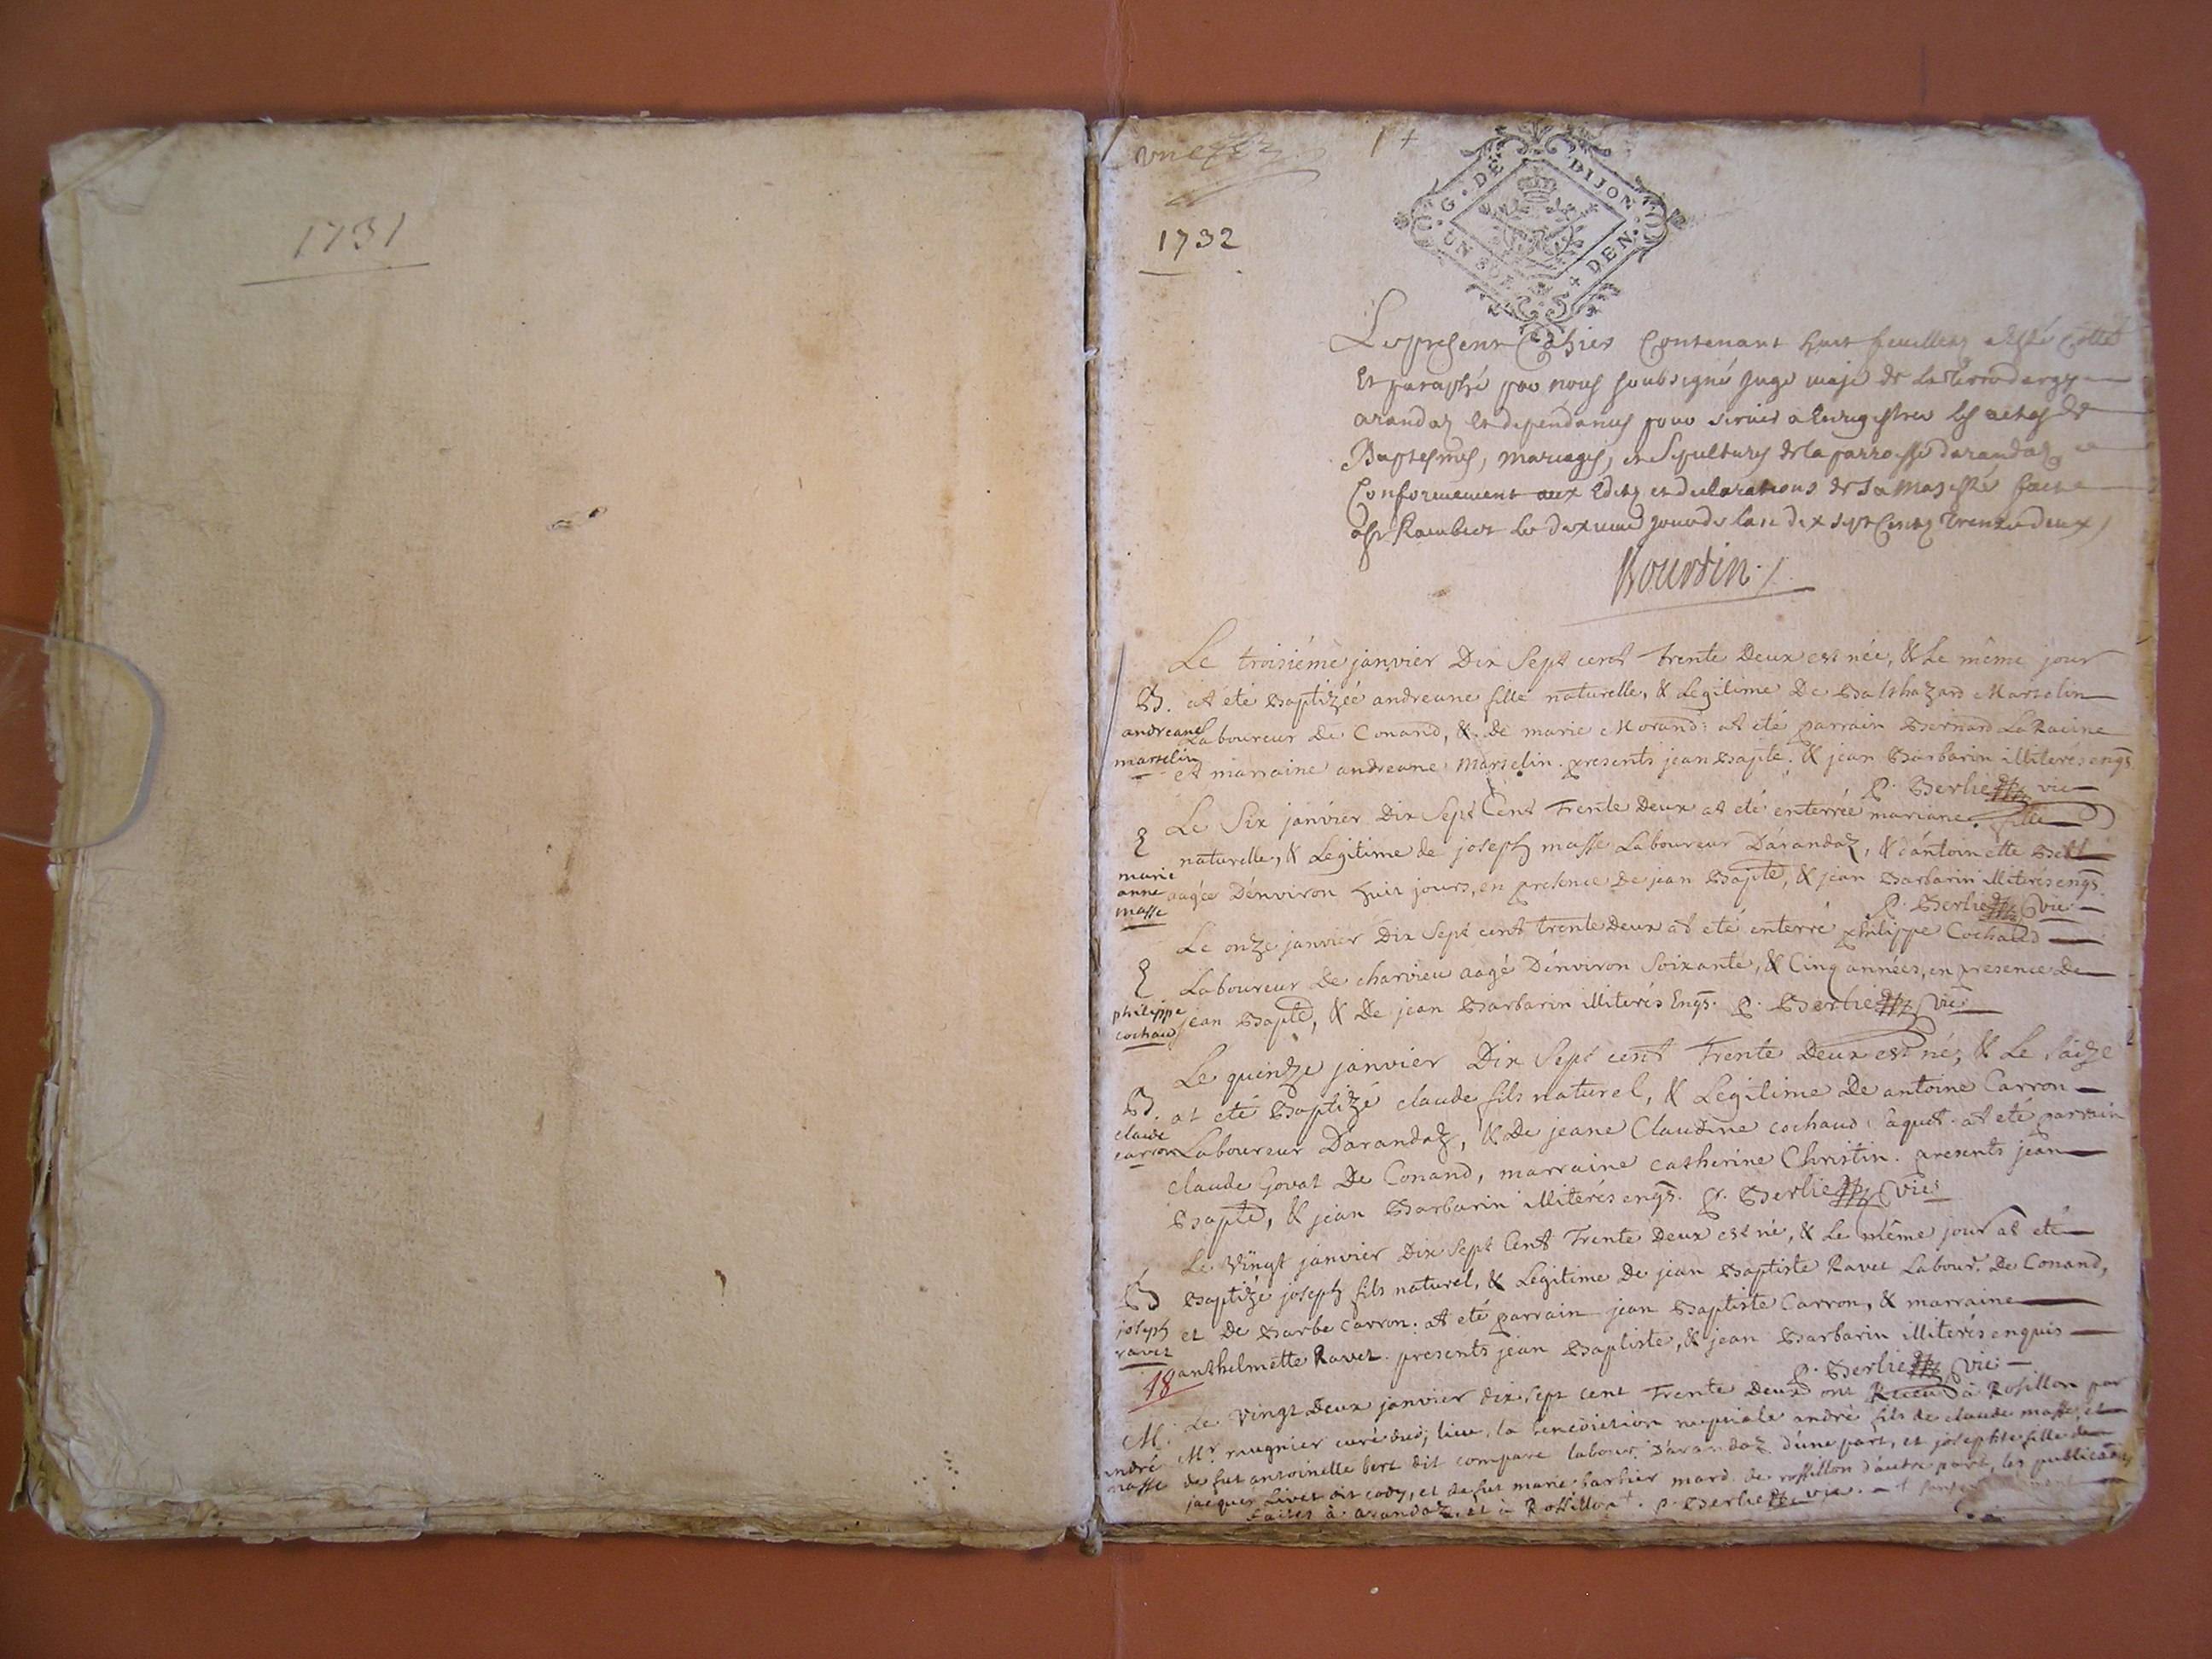 1731
1732
G. DE DIJON
UN SOL DEN.
Le present Cahier Contenant huit feuillets a esté Cotté
Et paraphé par nous soubsigné Juge maje de la Terre dargy
arandaz et dependances pour servir a Enregistrer les actes de
Baptesmes, mariages, et Sepultures de la parroisse darandaz
Conformement aux Edits et declarations de Sa Majesté fait
a St Rambert le jour de lan dix sept Cents Trente deux
Bourdin
Le troisiéme janvier Dix Sept cent Trente Deux est née, & Le même jour
B. at eté Baptizée andreane fille naturelle, & Legitime De Balthazard Marselin
andreane Laboureur De Conand, & de marie Morand: at eté parrain Bernard LaRacine
marselin et marraine andreane Marselin. presents jean Bapte. & jean Barbarin illiterés enqs.
P. Berlie vic
Le Six janvier Dix Sept Cent Trente Deux at eté enterrée mariane fille
naturelle, & Legitime de joseph masse Laboureur D'arandaz, & d'antoinette
marie
anne aagée D'environ huit jours, en presence De jean Bapte, & jean Barbarin illiterés enqs.
masse
P. Berlie vic
Le onze janvier Dix Sept cent trente Deux at eté enterré philippe Cochaud
Laboureur De charvieu aagé D'environ Soixante, & Cinq années, en presence De
philippe jean Bapte, & De jean Barbarin illiterés Enqs. P. Berlie vic
cochaud
Le quendze janvier Dix Sept cent Trente Deux est né, & Le Saize
B. at eté Baptizé claude fils naturel, & Legitime De antoine Carron
claude
carron Laboureur D'arandaz, & De jeane Claudine cochaud Saquet. at eté parrain
claude Govat De Conand, marraine catherine Christin. presents jean
Bapte, & jean Barbarin illiterés enqs. P. Berlie vic
Le Vingt janvier Dix Sept Cent Trente Deux est né, & Le même jour at eté
B Baptizé joseph fils naturel, & Legitime De jean Baptiste Ravet Labour. De Conand,
joseph et De Barbe Carron. at eté parrain jean Baptiste Carron, & marraine
ravet anthelmette Ravet. presents jean Baptiste, & jean Barbarin illiterés enquis
18
P. Berlie vic
Le vingt Deux janvier dix sept cent Trente Deux ont Receu à Rosillon par
M. Mr. rugnier curé dud. lieu, la benediction nuptiale andré fils de claude masse, et
andré de fut antoinette bert dit compare labour. D'arandaz d'une part, et josephte fille de
masse jacques Livet dit cady, et de fut marie barbier mard. de rossillon d'autre part, les publications
faites à arandaz, et à Rossillon. P. Berlie vic